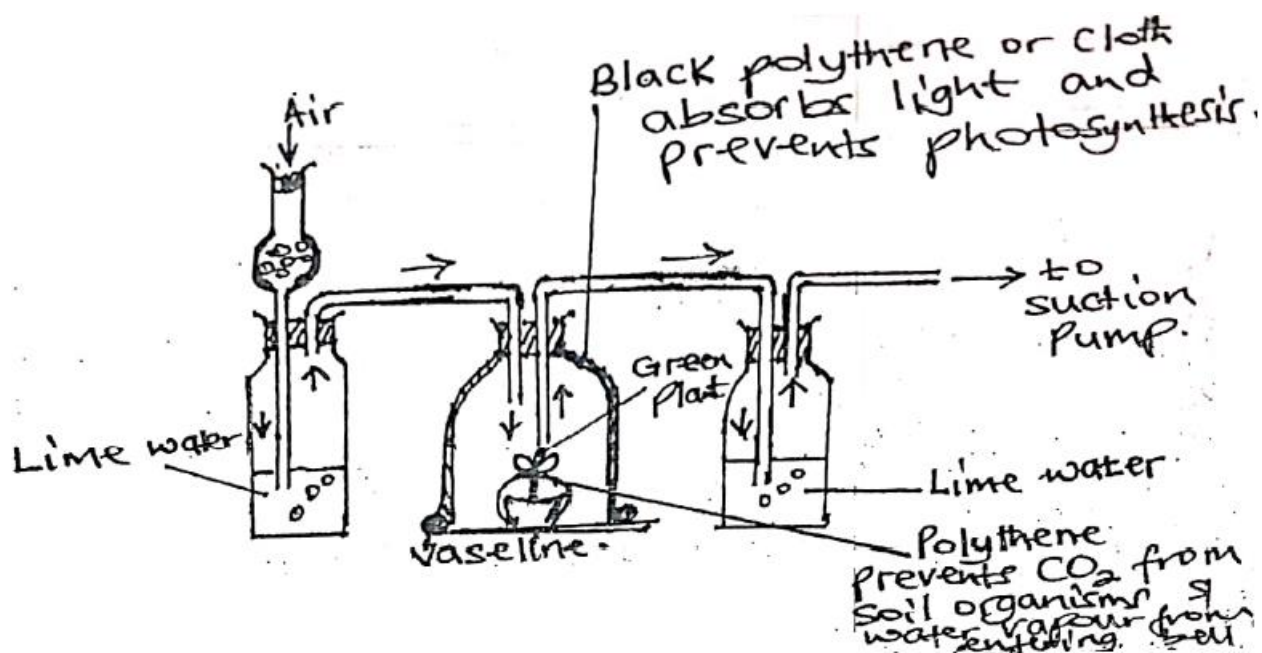 Black polythene or cloth
absorbs light and
prevents photosynthesis.
Air
to
suction
pump.
Green
Plant
Lime water
Lime water
vaseline.
Polythene
prevents CO₂ from
soil organisms &
water vapour from
entering bell